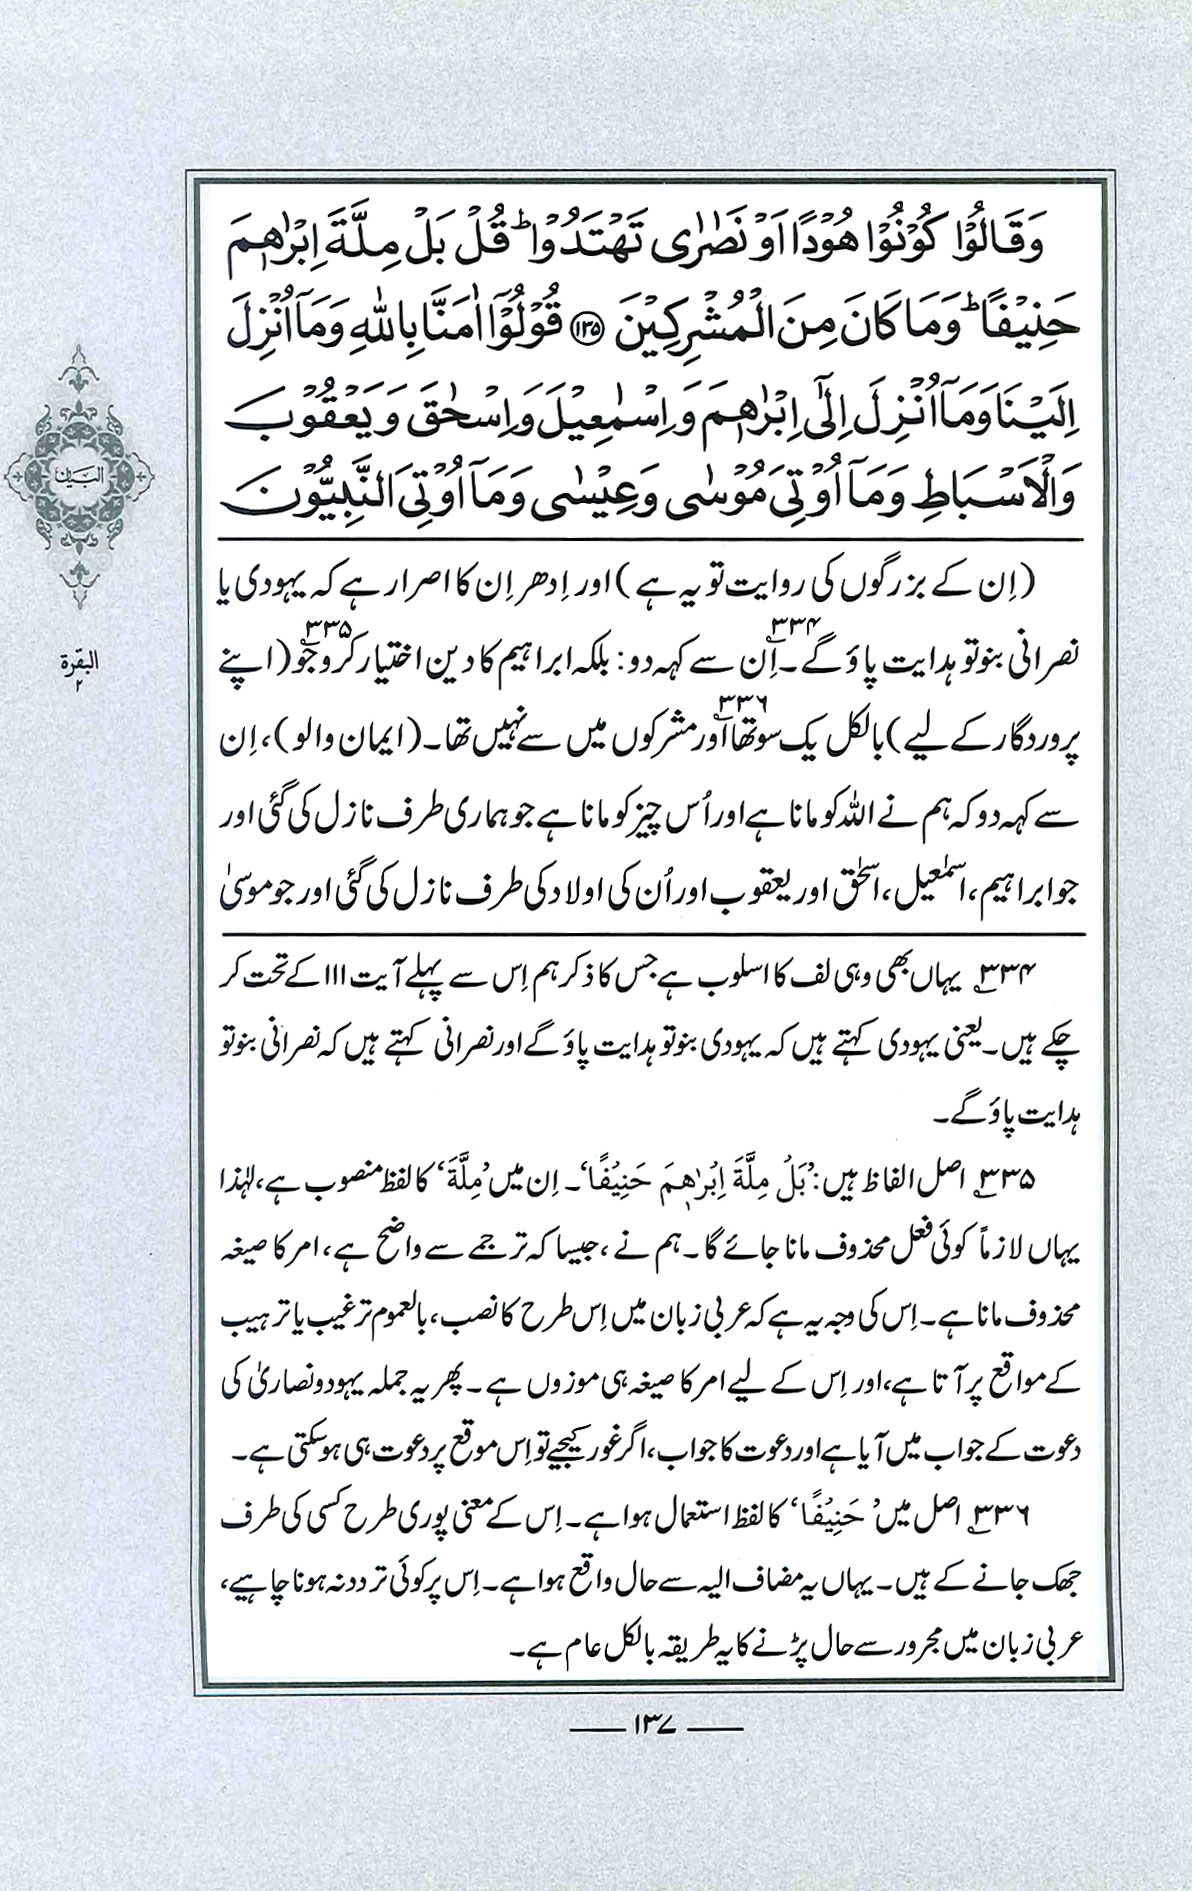 وَقَالُوْا كُوْنُوْا هُوْدًا اَوْ نَصٰرٰى تَهْتَدُوْاؕ قُلْ بَلْ مِلَّةَ اِبْرٰهٖمَ
حَنِيْفًاؕ وَمَا كَانَ مِنَ الْمُشْرِكِيْنَ ﴿۱۳۵﴾ قُوْلُوْٓا اٰمَنَّا بِاللّٰهِ وَمَآ اُنْزِلَ
اِلَيْنَا وَمَآ اُنْزِلَ اِلٰٓى اِبْرٰهٖمَ وَاِسْمٰعِيْلَ وَاِسْحٰقَ وَيَعْقُوْبَ
وَالْاَسْبَاطِ وَمَآ اُوْتِيَ مُوْسٰى وَعِيْسٰى وَمَآ اُوْتِيَ النَّبِيُّوْنَ
(اِن کے بزرگوں کی روایت تو یہ ہے) اور اِدھر اِن کا اصرار ہے کہ یہودی یا
نصرانی بنو تو ہدایت پاؤ گے۔۳۳۴ اِن سے کہہ دو: بلکہ ابراہیم کا دین اختیار کرو۳۳۵ جو (اپنے
پروردگار کے لیے) بالکل یک سو تھا۳۳۶ اور مشرکوں میں سے نہیں تھا۔ (ایمان والو)، اِن
سے کہہ دو کہ ہم نے اللہ کو مانا ہے اور اُس چیز کو مانا ہے جو ہماری طرف نازل کی گئی اور
جو ابراہیم، اسمٰعیل، اسحٰق اور یعقوب اور اُن کی اولاد کی طرف نازل کی گئی اور جو موسیٰ
۳۳۴؎ یہاں بھی وہی لف کا اسلوب ہے جس کا ذکر ہم اِس سے پہلے آیت ۱۱۱ کے تحت کر
چکے ہیں۔ یعنی یہودی کہتے ہیں کہ یہودی بنو تو ہدایت پاؤ گے اور نصرانی کہتے ہیں کہ نصرانی بنو تو
ہدایت پاؤ گے۔
۳۳۵؎ اصل الفاظ ہیں: ’بَلْ مِلَّةَ اِبْرٰهٖمَ حَنِيْفًا‘۔ اِن میں ’مِلَّةَ‘ کا لفظ منصوب ہے، لہٰذا
یہاں لازماً کوئی فعل محذوف مانا جائے گا۔ ہم نے، جیسا کہ ترجمے سے واضح ہے، امر کا صیغہ
محذوف مانا ہے۔ اِس کی وجہ یہ ہے کہ عربی زبان میں اِس طرح کا نصب، بالعموم ترغیب یا ترہیب
کے مواقع پر آتا ہے، اور اِس کے لیے امر کا صیغہ ہی موزوں ہے۔ پھر یہ جملہ یہود و نصاریٰ کی
دعوت کے جواب میں آیا ہے اور دعوت کا جواب، اگر غور کیجیے تو اِس موقع پر دعوت ہی ہو سکتی ہے۔
۳۳۶؎ اصل میں ’حَنِيْفًا‘ کا لفظ استعمال ہوا ہے۔ اِس کے معنی پوری طرح کسی کی طرف
جھک جانے کے ہیں۔ یہاں یہ مضاف الیہ سے حال واقع ہوا ہے۔ اِس پر کوئی تردد نہ ہونا چاہیے،
عربی زبان میں مجرور سے حال پڑنے کا یہ طریقہ بالکل عام ہے۔
البیان
البقرۃ
۲
۱۳۷